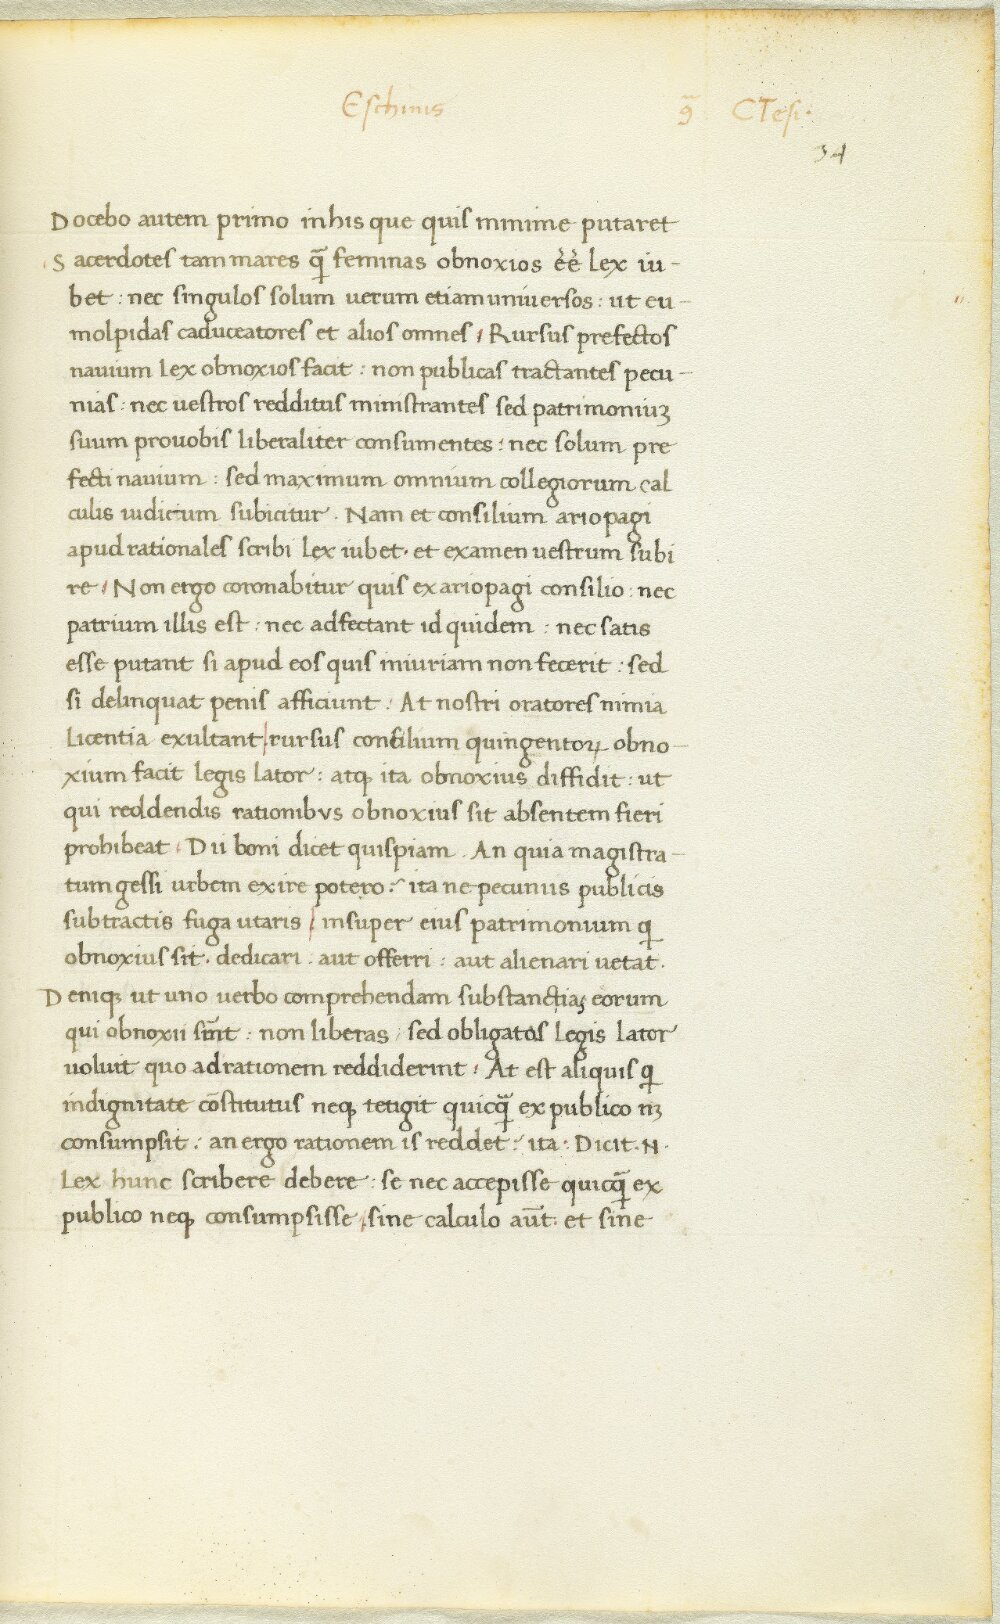 Eschinis ꝯ̃ CTesi·
34
Docebo autem primo in his que quis minime putaret
Sacerdotes tam mares q̃ feminas obnoxios e᷃e᷃ Lex iu-
bet : nec singulos solum uerum etiam uniuersos : ut eu-
molpidas caduceatores et alios omnes / Rursus prefectos
nauium Lex obnoxios facit : non publicas tractantes pecu-
nias : nec uestros redditus ministrantes sed patrimoniuꝫ
suum pro uobis liberaliter consumentes : nec solum pre
fecti nauium : sed maximum omnium collegiorum cal
culis iudicium subicitur . Nam et consilium ariopagi
apud rationales scribi Lex iubet · et examen uestrum subi
re / Non ergo coronabitur quis ex ariopagi consilio : nec
patrium illis est : nec adfectant id quidem : nec satis
esse putant si apud eos quis iniuriam non fecerit : sed
si delinquat penis afficiunt : At nostri oratores nimia
Licentia exultant / rursus consilium quingentoꝝ obno-
xium facit legis lator : atqꝫ ita obnoxius diffidit : ut
qui reddendis rationibus obnoxius sit absentem fieri
prohibeat . Dii boni dicet quispiam . An quia magistra-
tum gessi urbem exire potero : ita ne pecuniis publicis
subtractis fuga utaris / insuper eius patrimonium q̣i
obnoxius sit · dedicari : aut offerri : aut alienari uetat ·
Deniqꝫ ut uno uerbo comprehendam substanctiaꝫ eorum
qui obnoxii sĩnt : non liberas / sed obligatos Legis Lator
uoluit quo ad rationem reddiderint / At est aliquis qi
in dignitate cōstitutus neqꝫ tetigit quicq̃ ex publico nꝫ
consumpsit : an ergo rationem is reddet : ita : Dicit · N ·
Lex hunc scribere debere : se nec accepisse quicq̃ ex
publico neqꝫ consumpsisse / sine calculo aūt · et sine